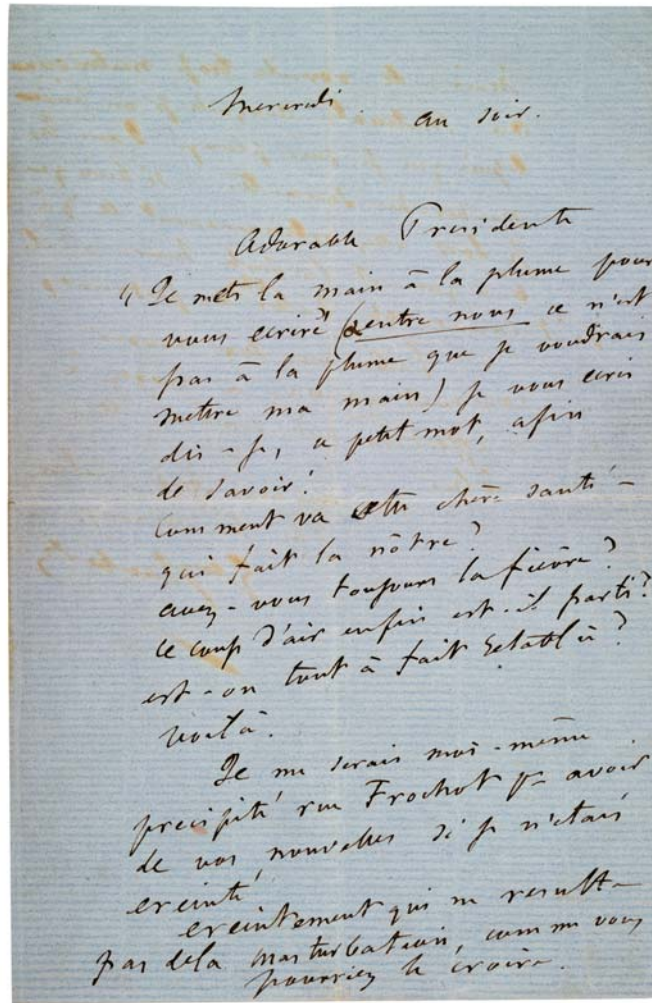 Mercredi au soir.
Adorable Presidente
"Je mets la main à la plume pour
vous ecrire" (entre nous ce n'est
pas à la plume que je voudrais
mettre ma main) je vous ecris
dis-je, ce petit mot, afin
de savoir!
Comment va cette chère santé -
qui fait la nôtre?
avez-vous toujours la fièvre?
ce coup d'air enfin est-il parti?
est-on tout à fait retablie?
voilà.
Je me serais moi-même
precipité rue Frochot pr avoir
de vos nouvelles si je n'étais
ereinté,
ereintement qui ne resulte
pas de la masturbation, comme vous
pourriez le croire.